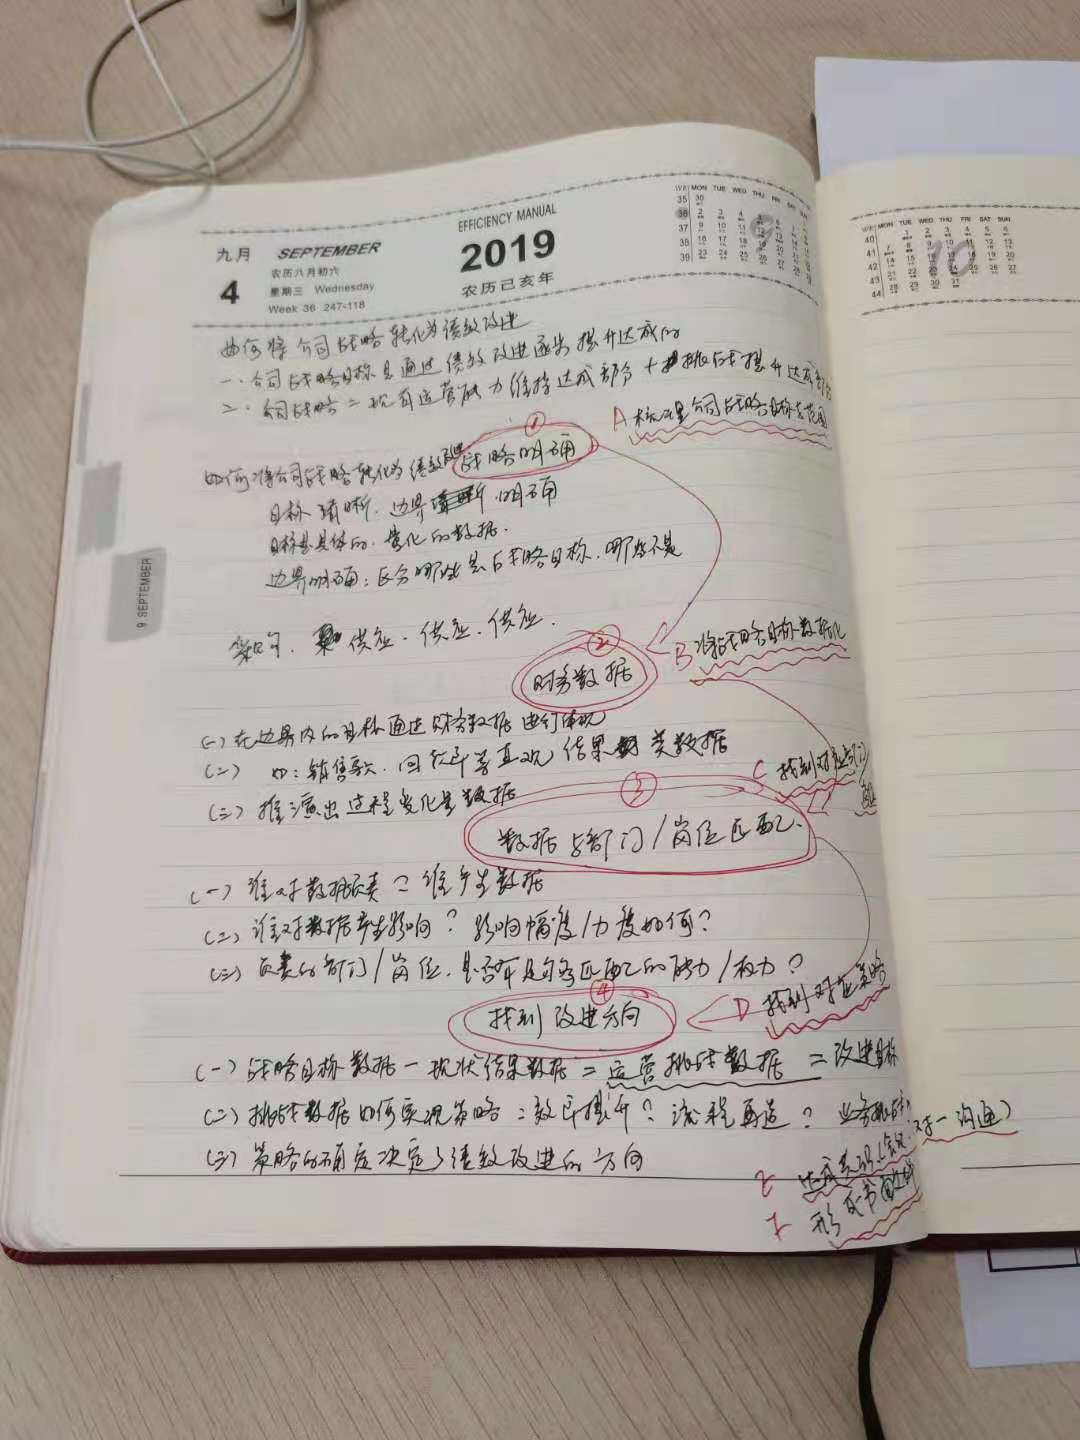 九月 SEPTEMBER
4
农历八月初六
星期三 Wednesday
Week 36 247-118
EFFICIENCY MANUAL
2019
农历己亥年
WK MON TUE WED THU FRI SAT SUN
35
36
37
38
39
MON TUE WED THU FRI SAT SUN
40
41
42
43
44
10
9 SEPTEMBER
如何将公司战略转化为绩效改进
一、公司战略目标是通过绩效改进逐步提升达成的
二、公司战略=现有运营能力维持达成部分+挑战提升达成部分
A 核心是公司战略目标去范围
①
如何将公司战略转化为绩效改进 战略明确
目标清晰、边界明确
目标是具体的、量化的数据.
边界明确:区分哪些是战略目标,哪些不是
供应、供应、供应.
②
财务数据
B 将战略目标数据化
(一)在边界内的目标通过财务数据进行体现
(二) 如:销售额、回款等直观结果类数据
(三)推演出过程变化量数据
C 找到对应部门
③
数据与部门/岗位匹配.
(一)谁对数据负责=谁产生数据
(二)谁对数据产生影响?影响幅度/力度如何?
(三)负责的部门/岗位,是否有足够匹配的能力/权力?
④
找到改进方向
D 找到对应策略
(一)战略目标数据-现状结果数据=运营挑战数据=改进目标
(二)挑战数据如何实现策略:效率提升?流程再造?业务
(三)策略的确定决定了绩效改进的方向
达成共识(会议、对一沟通)
形成书面